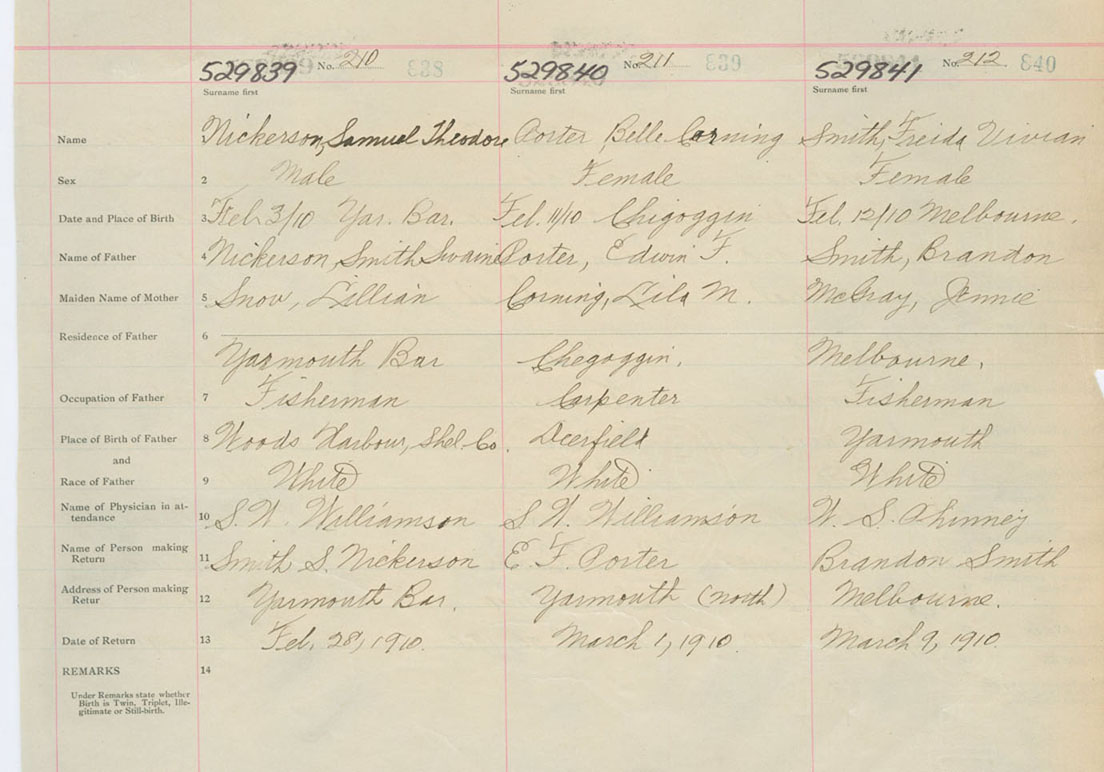 529839 No. 210 838 529840 No. 211 839 529841 No. 212 840
Surname first Surname first Surname first
Name Nickerson, Samuel Theodore Porter Belle Corning Smith, Freida Vivian
Sex 2 Male Female Female
Date and Place of Birth 3 Feb 3/10 Yar. Bar. Feb. 11/10 Chigoggin Feb. 12/10 Melbourne.
Name of Father 4 Nickerson, Smith Swaine Porter, Edwin F. Smith, Brandon
Maiden Name of Mother 5 Snow, Lillian Corning, Lila M. McGray, Jennie
Residence of Father 6
Yarmouth Bar Chegoggin. Melbourne.
Occupation of Father 7 Fisherman Carpenter Fisherman
Place of Birth of Father 8 Woods Harbour, Shel. Co. Deerfield Yarmouth
and
Race of Father 9 White White White
Name of Physician in at-
tendance 10 S. W. Williamson S. W. Williamson W. S. Phinney
Name of Person making
Return 11 Smith S. Nickerson E F. Porter Brandon Smith
Address of Person making
Retur 12 Yarmouth Bar. Yarmouth (north) Melbourne.
Date of Return 13 Feb. 28, 1910. March 1, 1910. March 9, 1910.
REMARKS 14
Under Remarks state whether
Birth is Twin, Triplet, Ille-
gitimate or Still-birth.